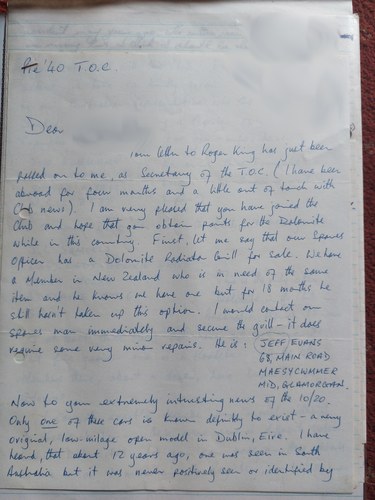 Pre '40 T.O.C.
Dear
your letter to Roger King has just been
passed on to me, as Secretary of the T.O.C. (I have been
abroad for four months and a little out of touch with
Club news). I am very pleased that you have joined the
Club and hope that you obtain points for the Dolomite
while in this country. First, let me say that our Spares
Officer has a Dolomite Radiator Grill for sale. We have
a Member in New Zealand who is in need of the same
item and he knows we have one but for 18 months he
still hasn't taken up this option. I would contact our
spares man immediately and secure the grill - it does
require some very minor repairs. He is: JEFF EVANS
68, MAIN ROAD
MAESYCWMMER
MID. GLAMORGAN.
Now to your extremely interesting news of the 10/20.
Only one of these cars is known definitly to exist - a very
original, low-milage open model in Dublin, Eire. I have
heard, that about 12 years ago, one was seen in South
Australia but it was never positively seen or identified by